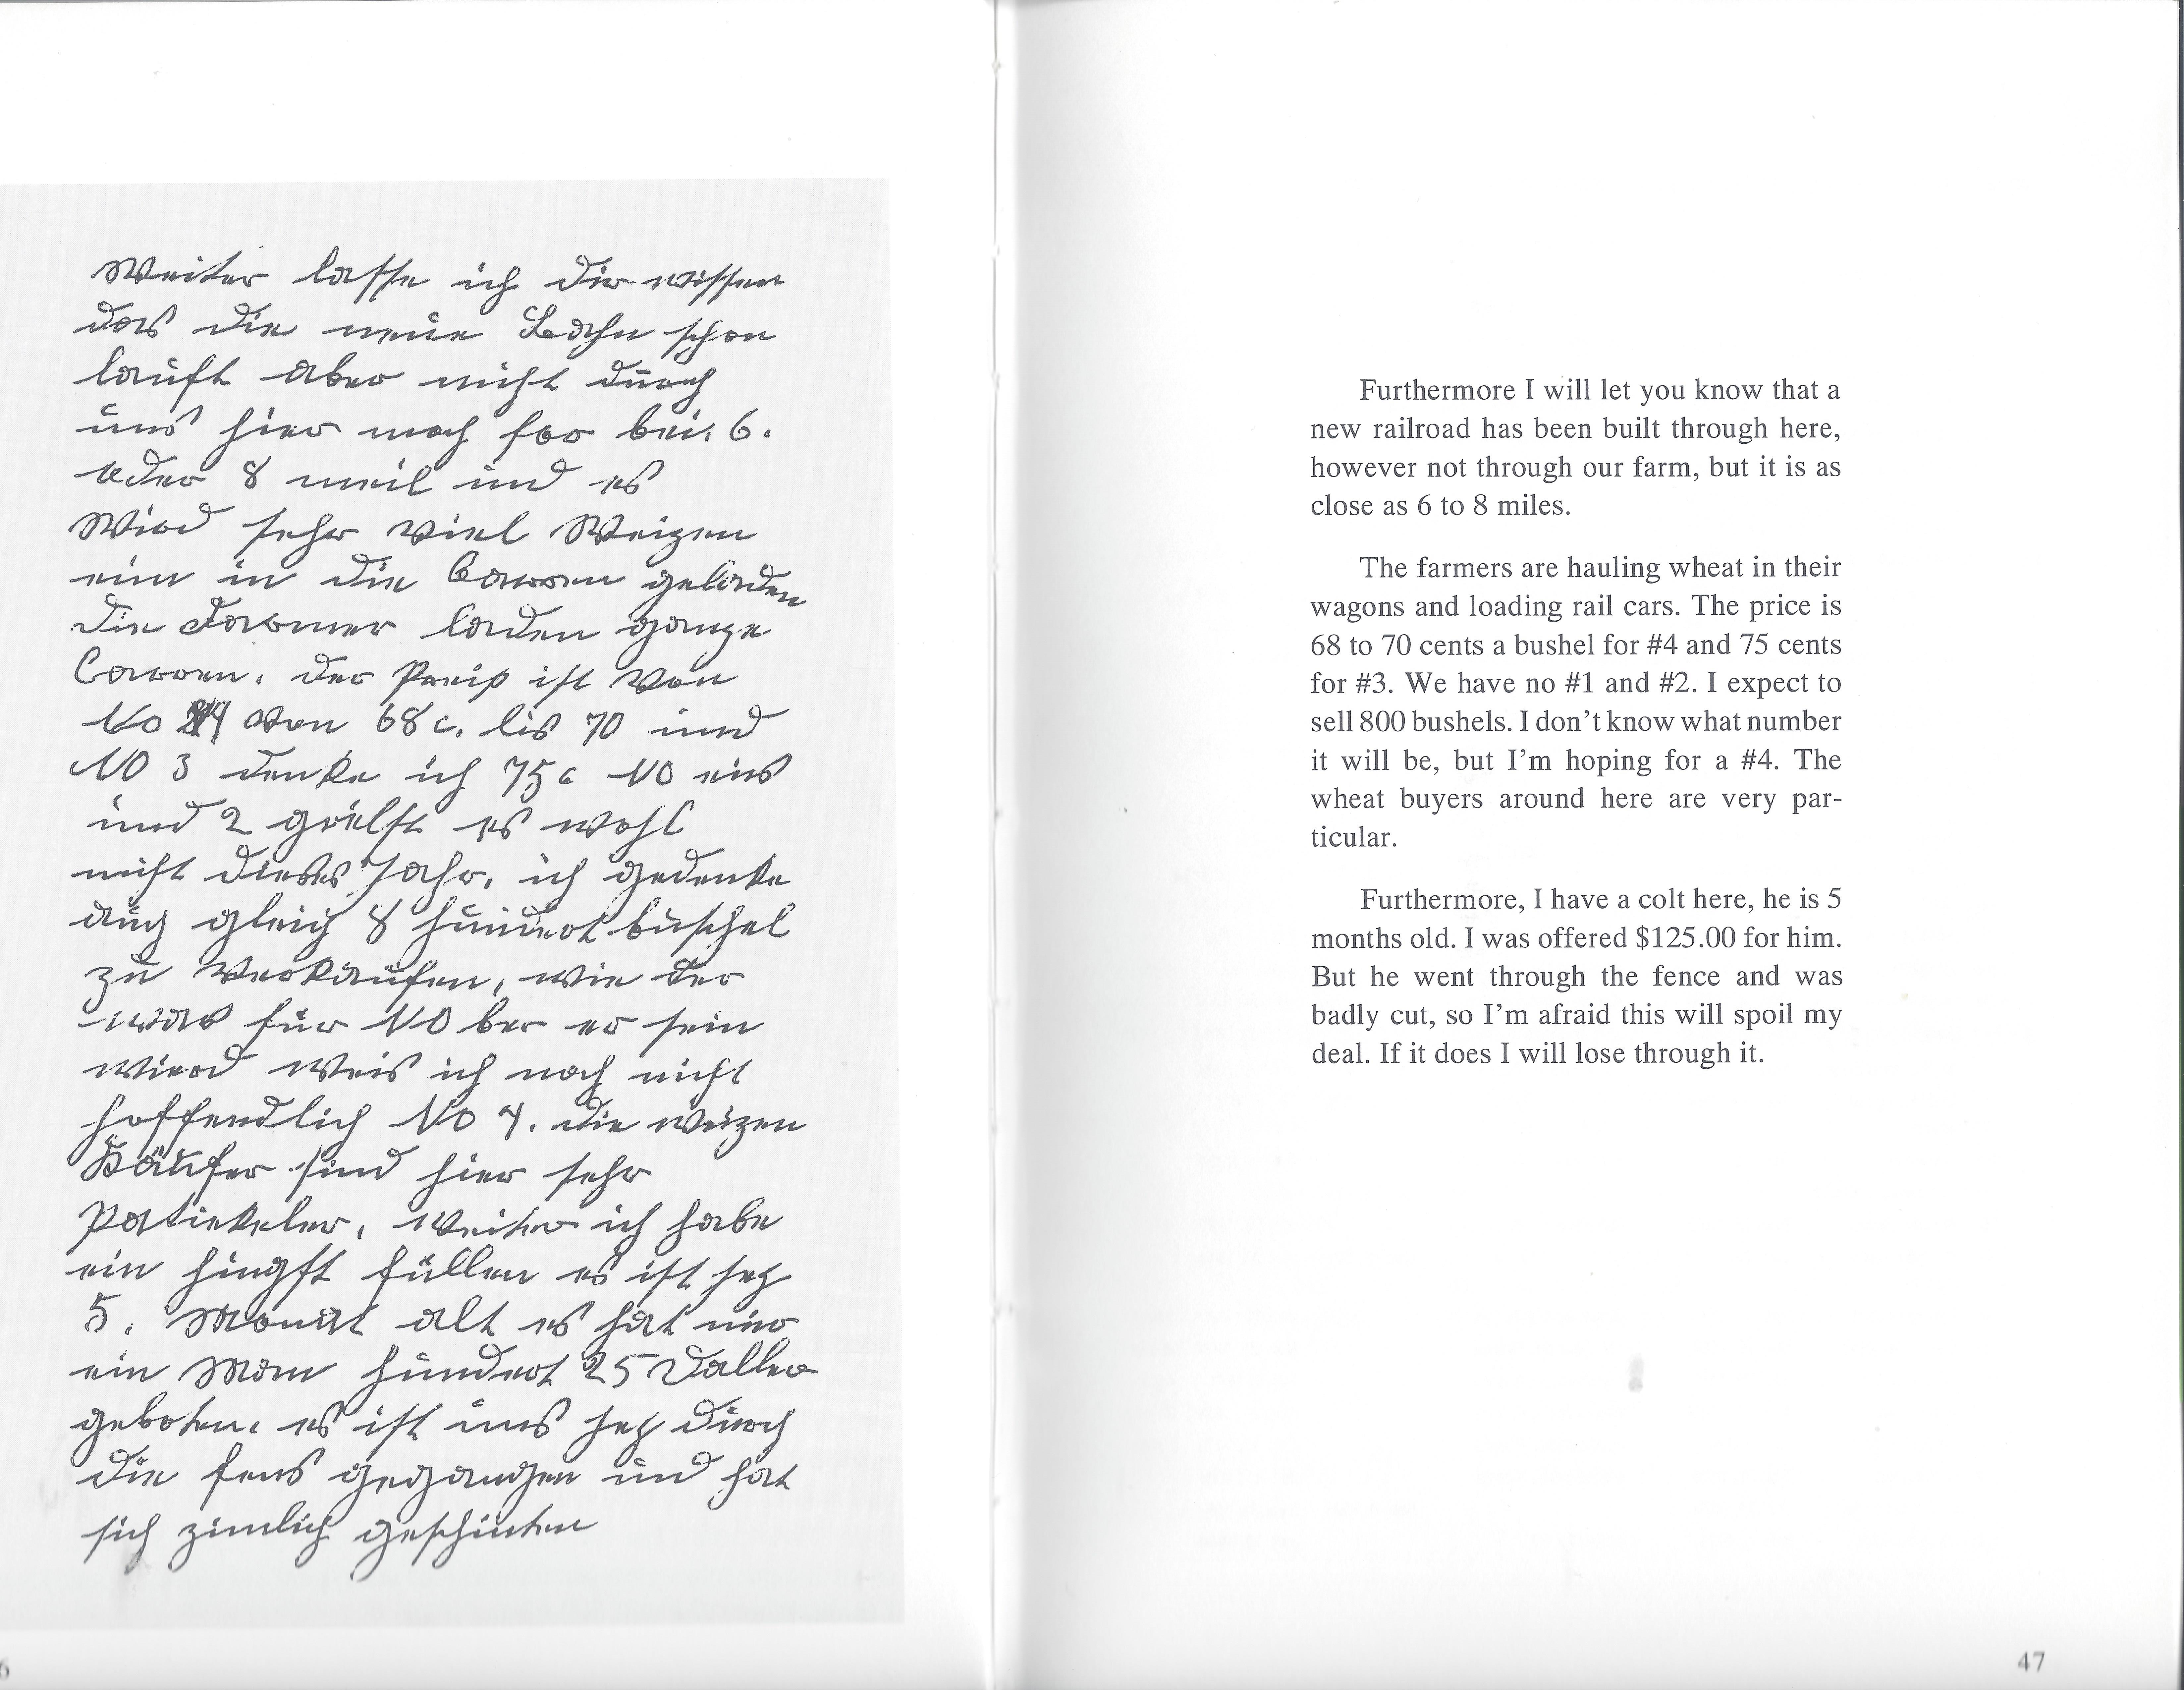 Weiter lasse ich dir wissen
das die neue Bahn schon
lauft aber nicht durch
uns hier noch for bei. 6.
oder 8 meil und es
Wird sehr viel Weizen
ein in die Carren geladen
die Farmer laden ganze
Carren. der Preis ist von
No 4 von 68 c. bis 70 und
NO 3 denke ich 75 c NO eins
und 2 es wohl
nicht dieses Jahr. ich gedenke
auch gleich 8 hundert buschel
zu verkaufen, wie der
was für NO ber er sein
wierd weis ich noch nicht
hoffendlich No 4. die weizen
Käufer sind hier sehr
Patiekeler. weiter ich habe
ein hingst füllen es ist jez
5. Monat alt es hat mir
ein Man hundert 25 Daller
geboten. es ist uns jez durch
die fens gegangen und hat
sich zimlich geschinten
6
Furthermore I will let you know that a
new railroad has been built through here,
however not through our farm, but it is as
close as 6 to 8 miles.
The farmers are hauling wheat in their
wagons and loading rail cars. The price is
68 to 70 cents a bushel for #4 and 75 cents
for #3. We have no #1 and #2. I expect to
sell 800 bushels. I don't know what number
it will be, but I'm hoping for a #4. The
wheat buyers around here are very par-
ticular.
Furthermore, I have a colt here, he is 5
months old. I was offered $125.00 for him.
But he went through the fence and was
badly cut, so I'm afraid this will spoil my
deal. If it does I will lose through it.
47